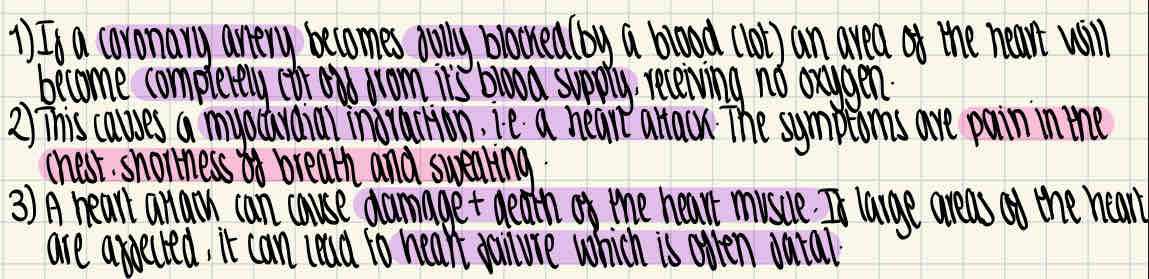 1) If a coronary artery becomes fully blocked (by a blood clot) an area of the heart will
become completely cut off from it's blood supply, receiving no oxygen.
2) This causes a myocardial infarction, i.e. a heart attack. The symptoms are pain in the
chest, shortness of breath and sweating.
3) A heart attack can cause damage + death of the heart muscle. If large areas of the heart
are affected, it can lead to heart failure which is often fatal.